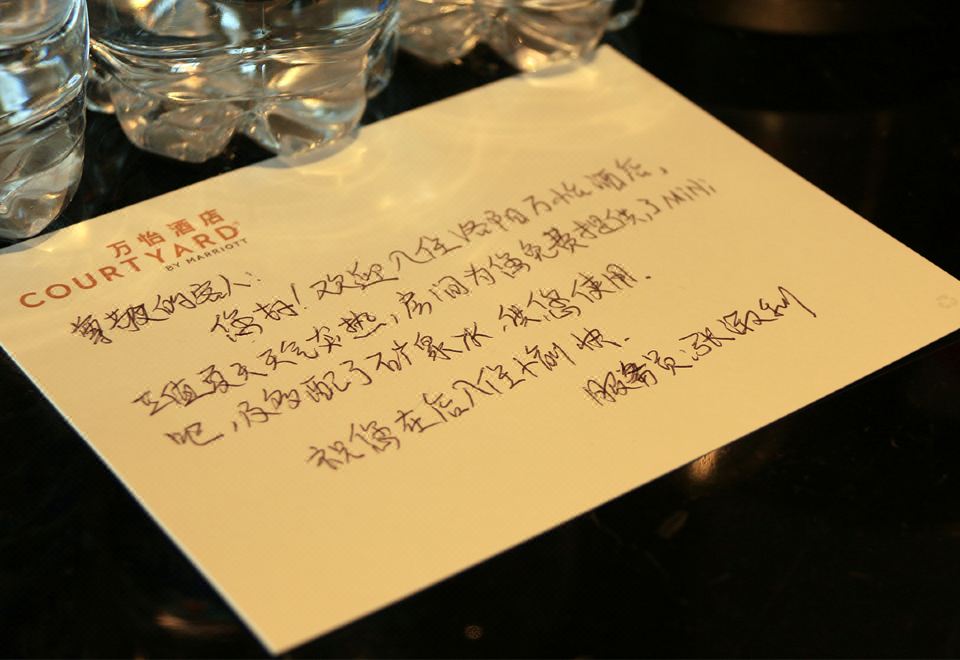 万怡酒店
COURTYARD
BY MARRIOTT
尊敬的客人：
您好！欢迎入住洛阳万怡酒店，
正值夏天天气炎热，房间为您免费提供了MiNi
吧，及多配了矿泉水，供您使用．
祝您在店入住愉快．
服务员：张